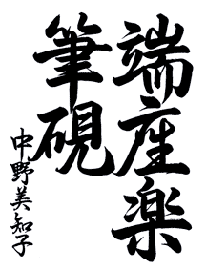 端座楽
筆硯
中野美知子